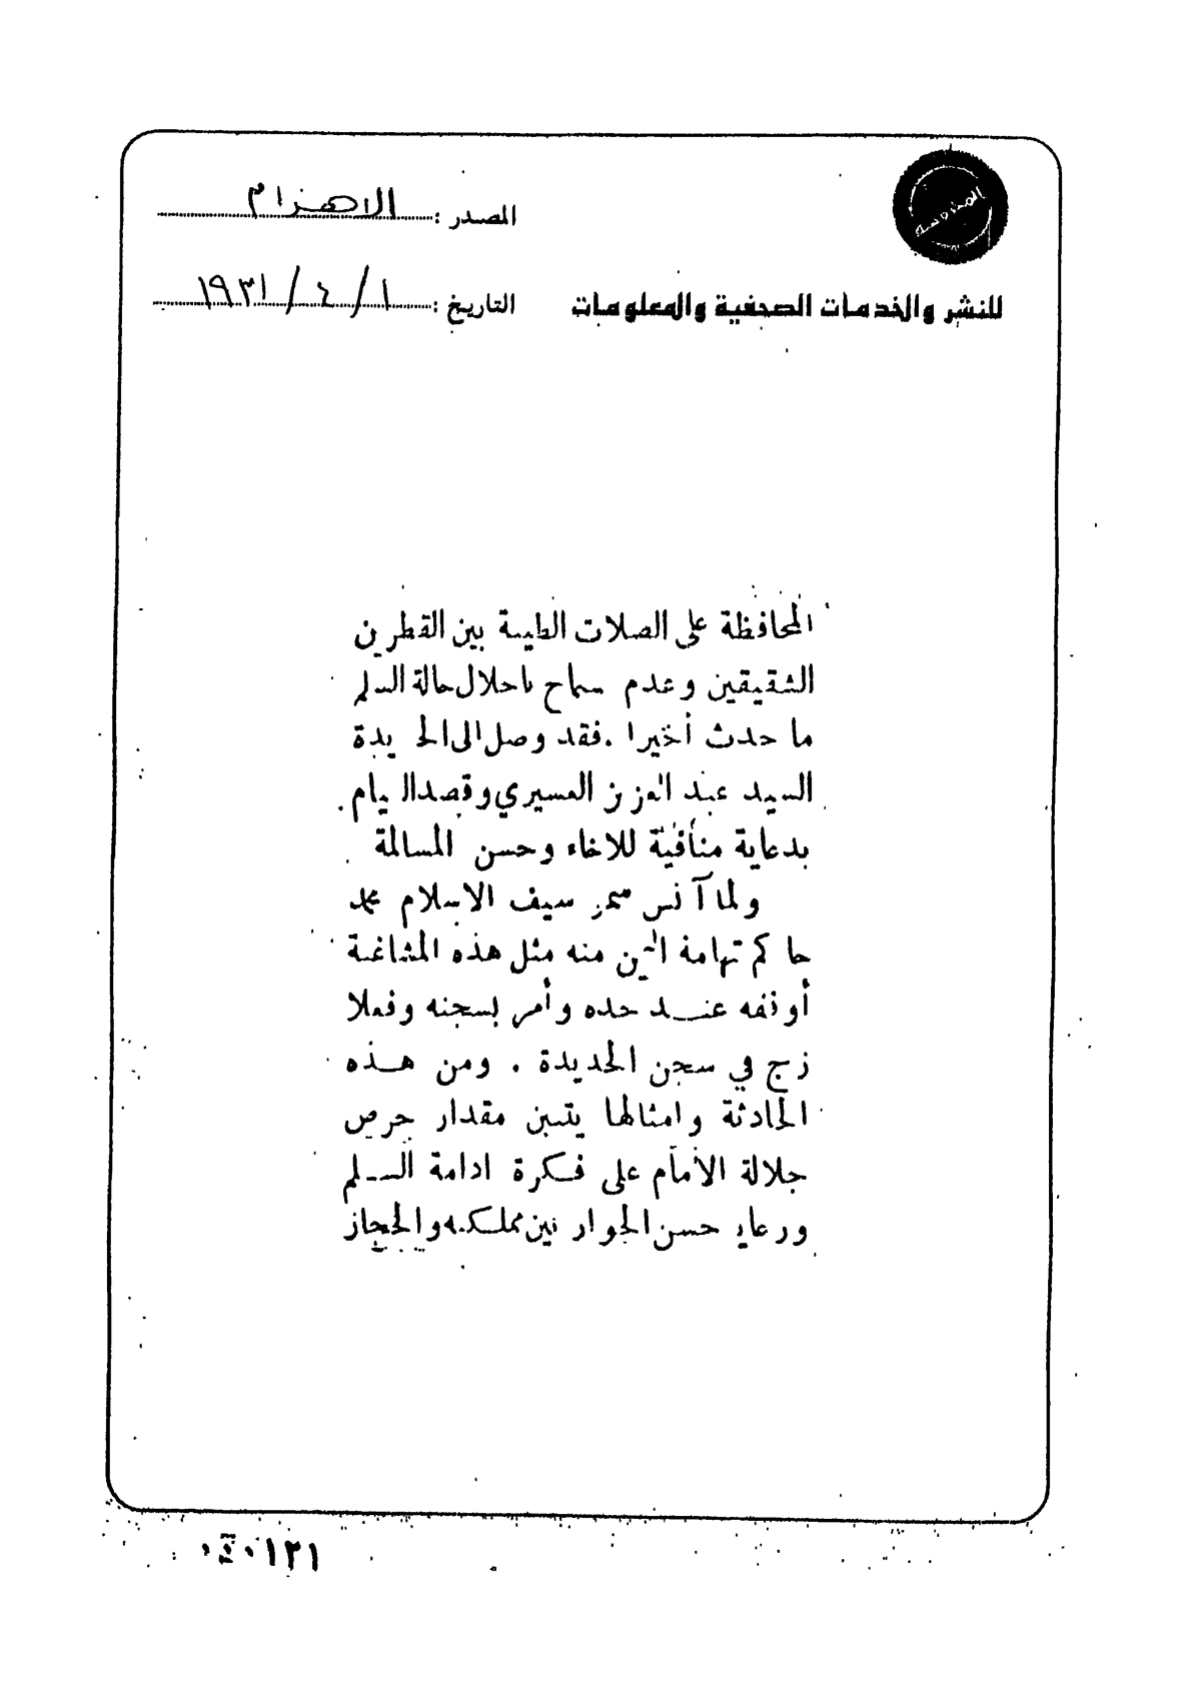 المحروسة
المصدر : الاهرام
للنشر والخدمات الصحفية والمعلومات
التاريخ : ١ / ٤ / ١٩٣١
المحافظة على الصلات الطيبة بين القطرين
الشقيقين وعدم سماح باحلال حالة السلم
ما حدث أخيرا . فقد وصل الى الحديدة
السيد عبد العزيز العسيري وقصد القيام
بدعاية منافية للاخاء وحسن المسالمة
ولما آنس سمو سيف الاسلام محمد
حاكم تهامة اليمن منه مثل هذه المشاغبة
أوقفه عند حده وأمر بسجنه وفعلا
زج في سجن الحديدة . ومن هذه
الحادثة وامثالها يتبين مقدار حرص
جلالة الأمام على فكرة ادامة السلم
ورعاية حسن الجوار بين مملكته والحجاز